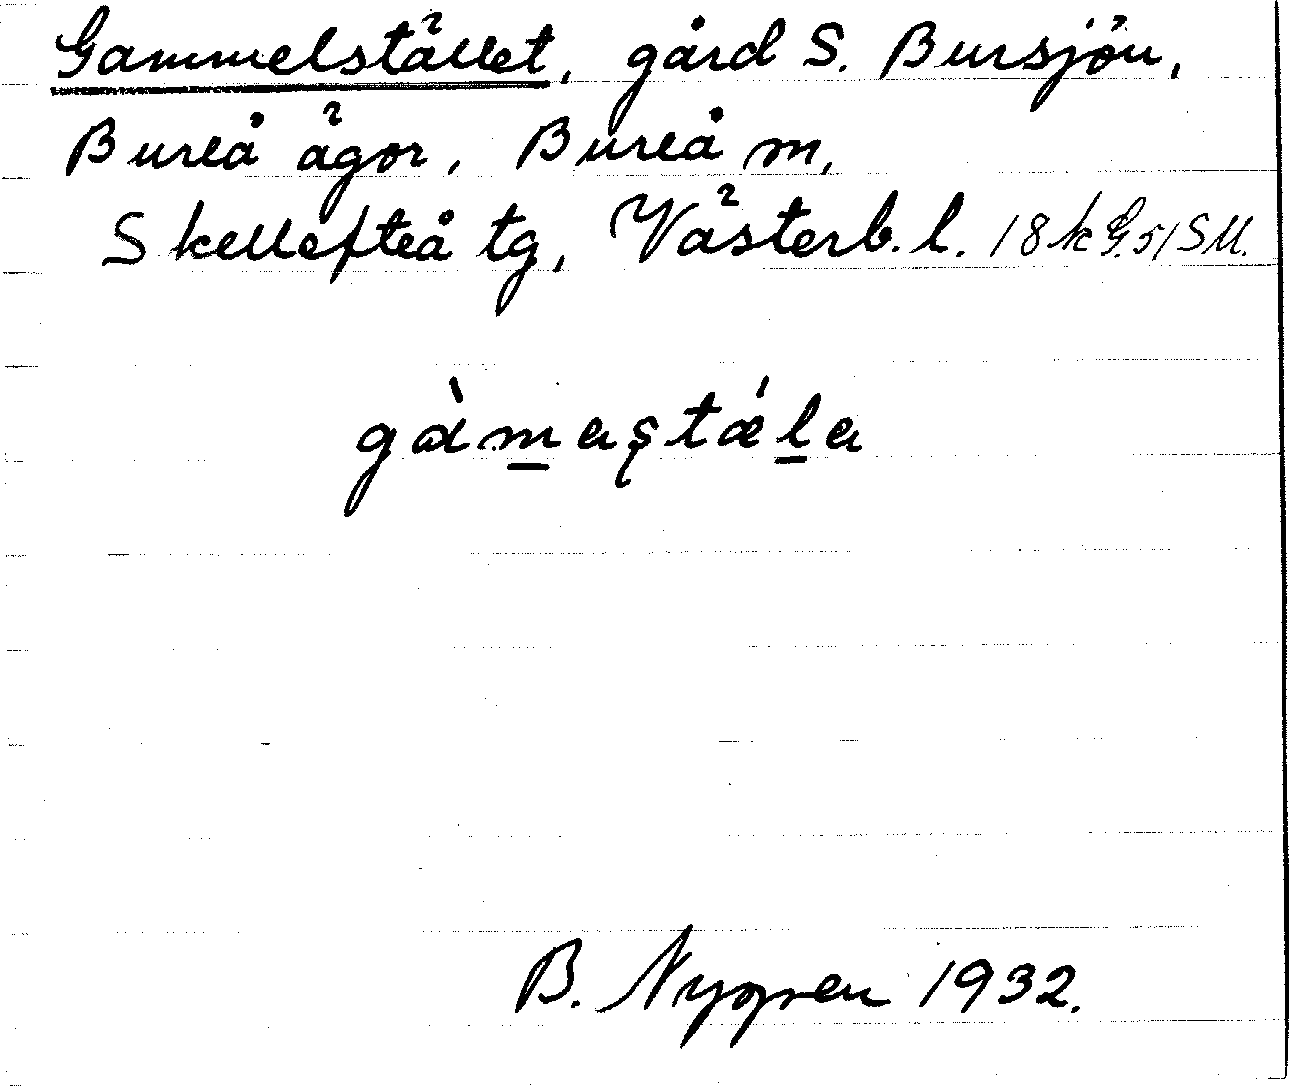 Gammelstället, gård S. Bursjön,
Bureå ägor, Bureå m,
Skellefteå tg, Västerb. l. 18 k G. 51 SU.
gàm̲aʂtǽl̲a
B. Nygren 1932.